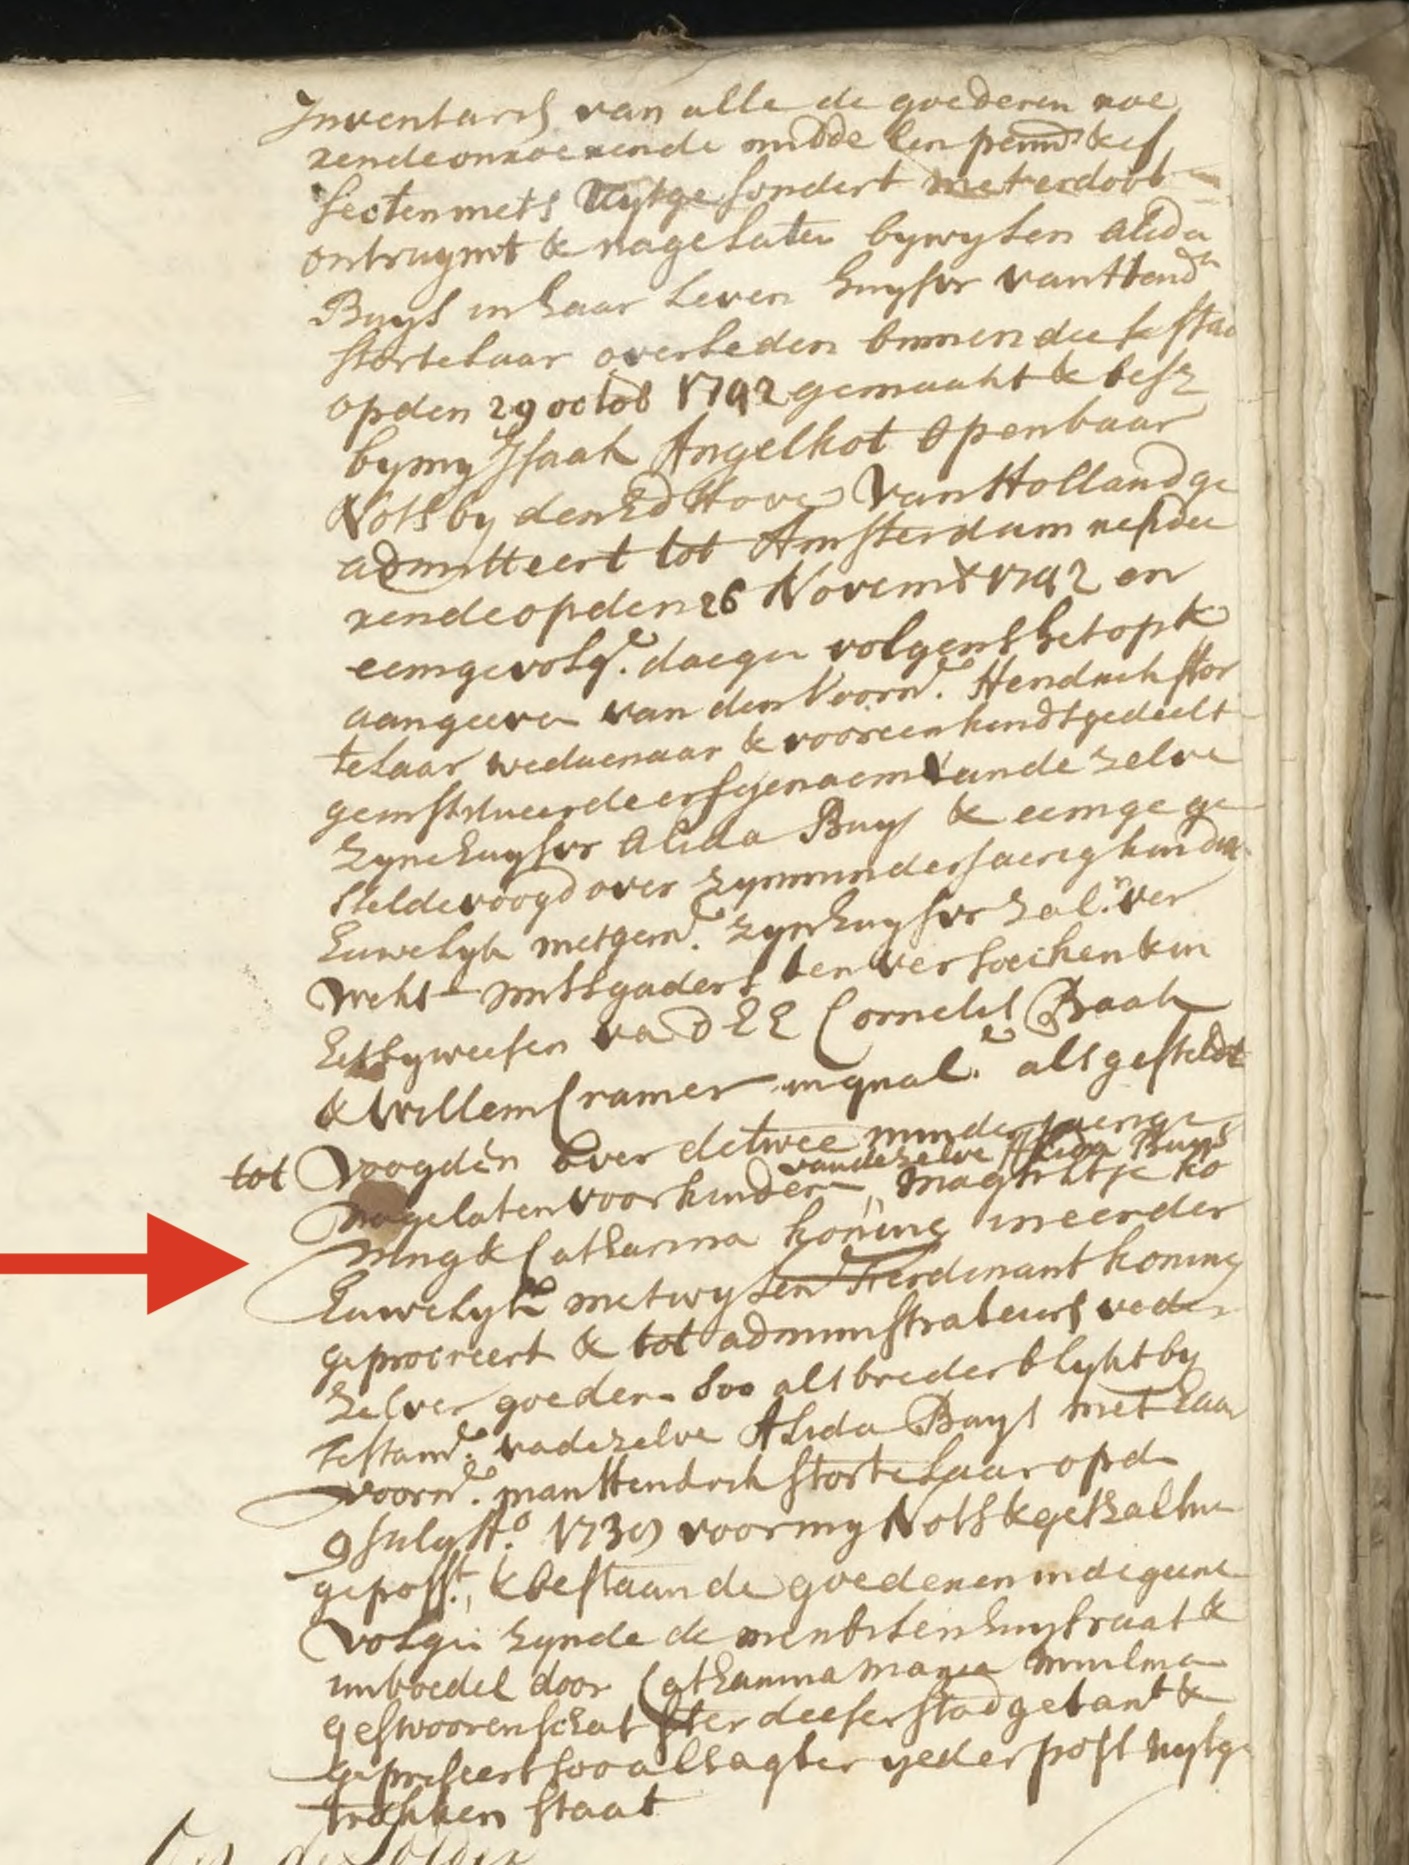 Inventaris van alle de goederen roe
rende onroerende midde len penn & ef
fecten niets Uytgesondert met er doot
ontruymt & nagelaten by wylen Alida
Buys in haar Leven huysvr van Hendk
Stortelaar overleden binnen deese stad
op den 29 octob 1742 gemaakt & bes
by my Isaak Angelkot Openbaar
Nots by den Ed Hove Van Holland ge
admitteert tot Amsterdam resdee
rende op den 26 Novemb 1742 en
eenige volge. daegen volgens het op &
aangeeven van den Voorn. Hendrik Stor
telaar weduenaar & voor een kindtgedeelt
geinstitueerde erfgenaem Van de zelve
Zyne huysvr Alida Buys & eenige ge
stelde voogd over Zyn minderjaerig kind in
huwelyk met gem. Zyn huysvr Zal.r ver
wekt - mitsgaders ten versoeken & in
het byweesen va D E E Cornelis Baak
& Willem Cramer in qual.e als gesteldt
tot Voogden over de twee minderjaerige
van de zelve Alida Buys
nagelaten voorkinderen, Magrietje Ko
ning & Catharina Koning in eerder
huwelyk met wylen Ferdinant Koning
geprocreert & tot administrateurs veder
Zelver goeder Soo als breder blykt by
testam. va de zelve Alida Buys met haar
voorn. man Hendrik Stortelaar op d
9 July Ao. 1739 voor my Nots & get alhier
gepasst., & bestaan de goederen in de geene
Volgn Zynde de menbelen huysraat &
inboedel door Catharina Maria
geswooren schatster deeser stad getaxt &
gepriseert soo als agter yeder post uytge
trokken staat
Op de Solder